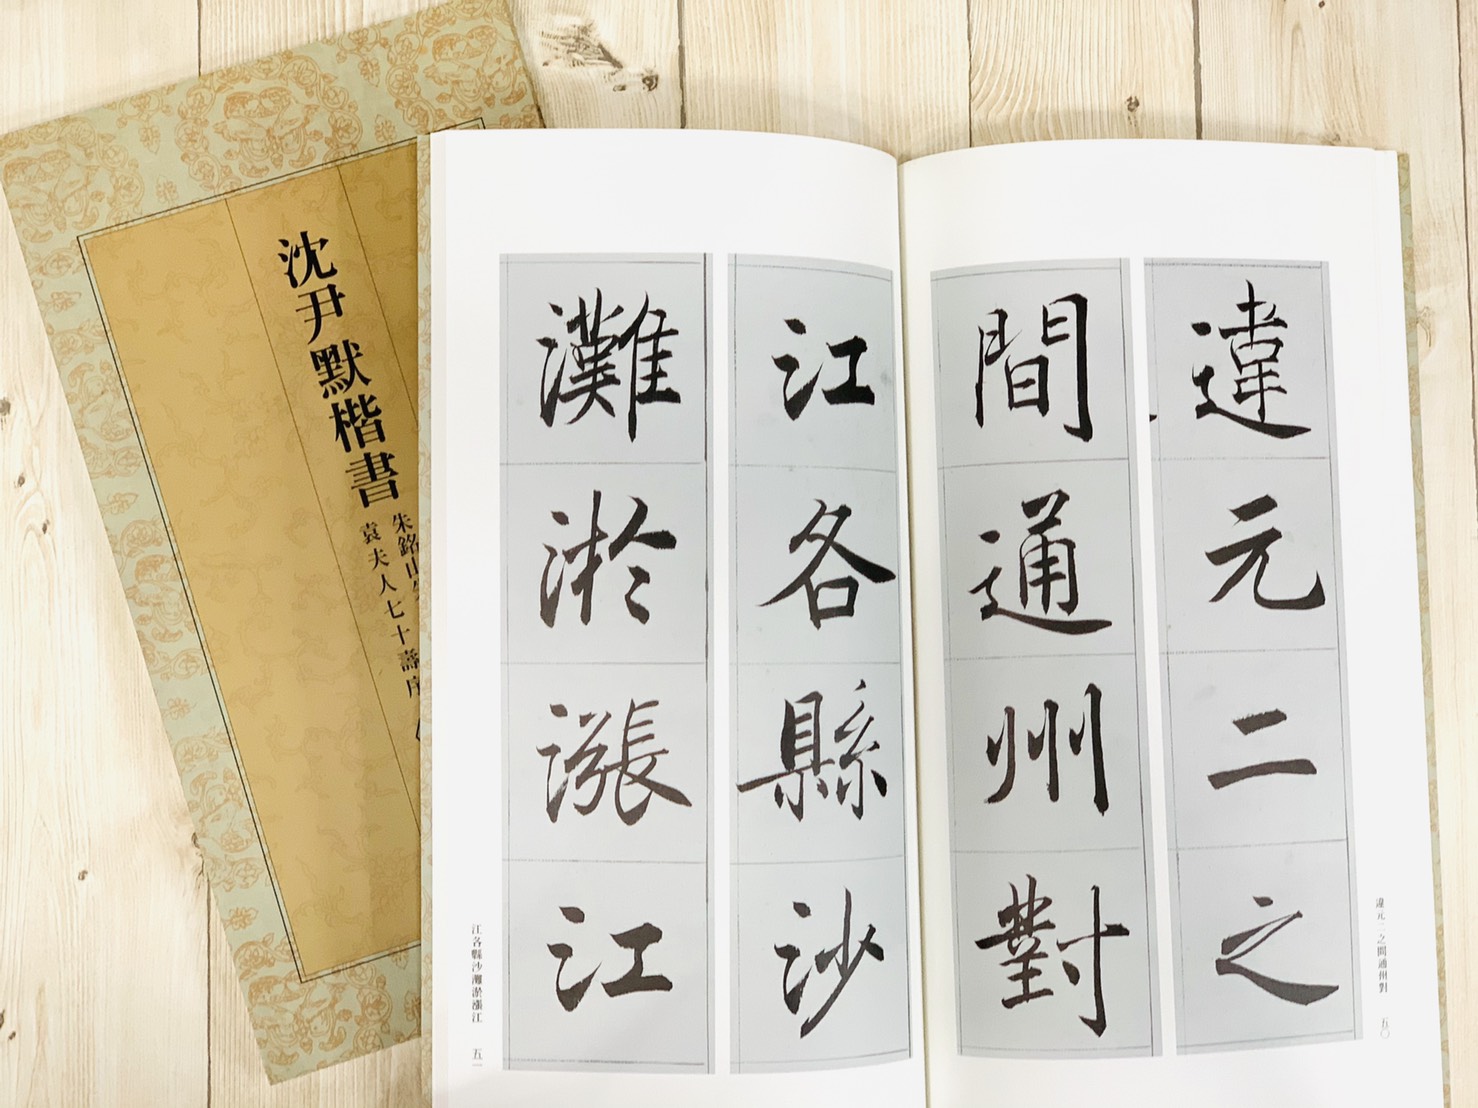 沈尹默楷書
朱銘山
袁夫人七十壽序
違元二之
間通州對
江各縣沙
灘淤漲江
違元二之間通州對 五〇
江各縣沙灘淤漲江 五一